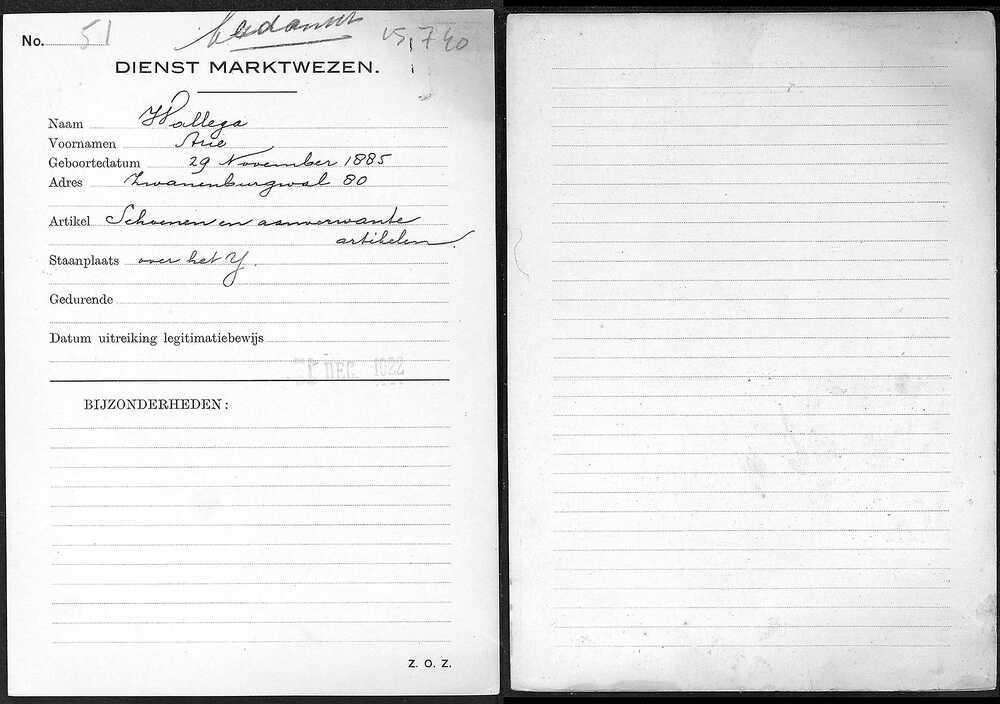 No. 51 bedankt 15,740
DIENST MARKTWEZEN.
Naam Wallega
Voornamen Arie
Geboortedatum 29 November 1885
Adres Zwanenburgwal 80
Artikel Schoenen en aanverwante
artikelen.
Staanplaats over het Y.
Gedurende
Datum uitreiking legitimatiebewijs
DEC. 1922
BIJZONDERHEDEN:
Z. O. Z.